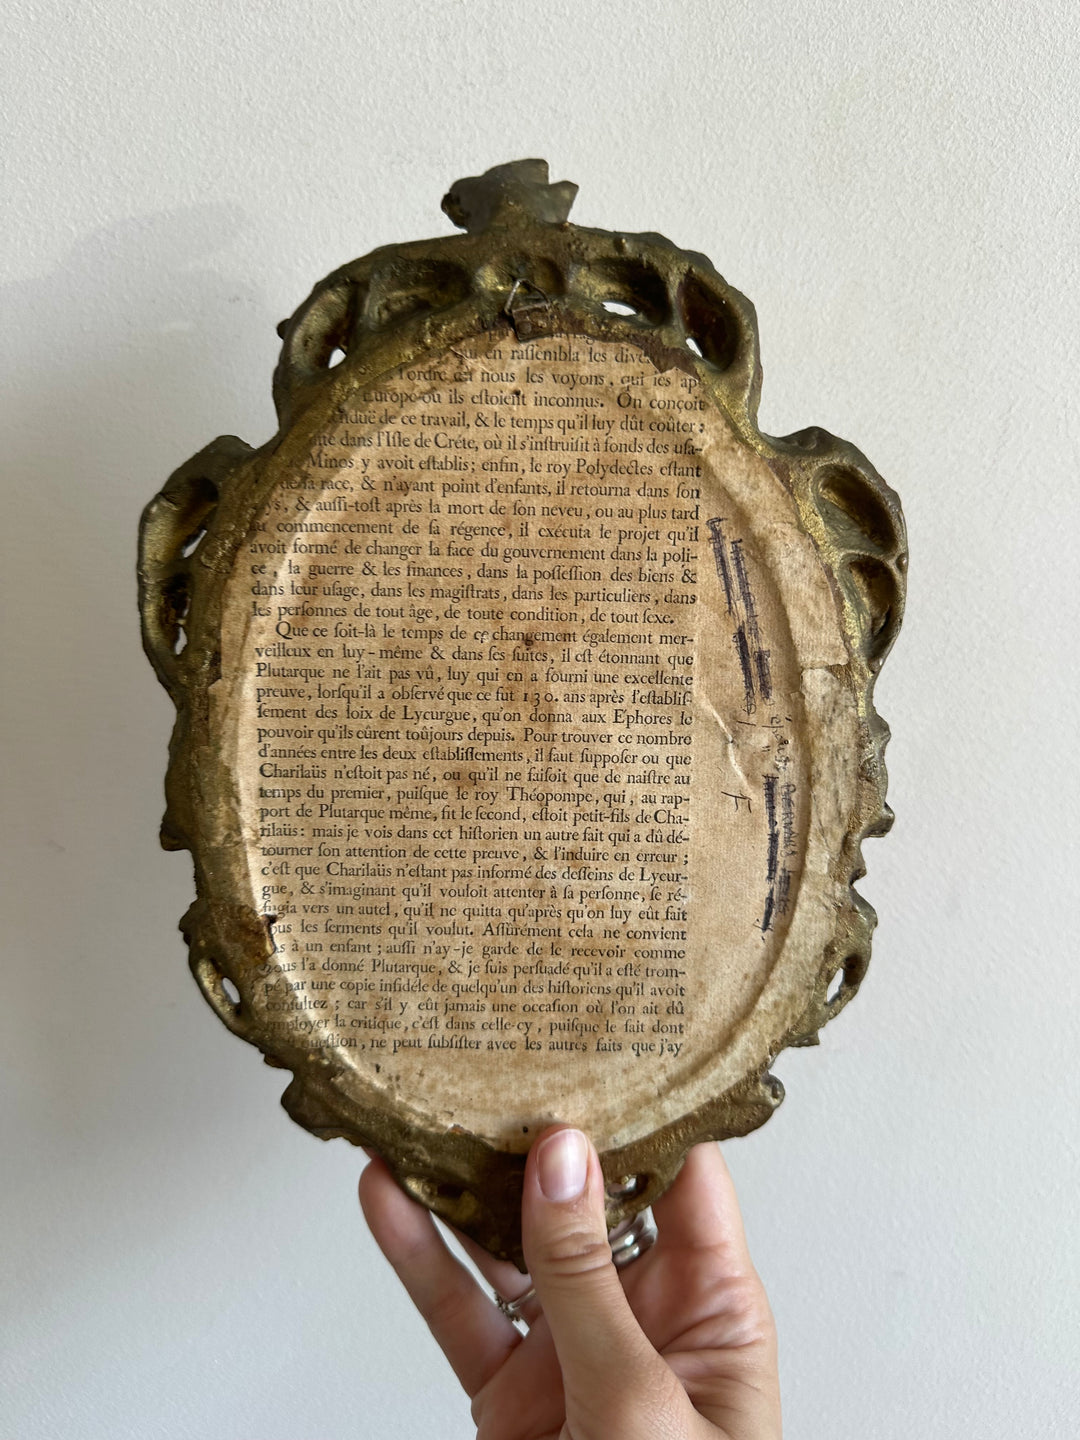 qui en raſſembla les dive
l'ordre nous les voyons, qui les ap
Europe où ils eſtoient inconnus. On conçoit
de ce travail, & le temps qu'il luy dût coûter;
dans l'Iſle de Créte, où il s'inſtruiſit à fonds des uſa-
Minos y avoit eſtablis; enfin, le roy Polydectes eſtant
de ſa race, & n'ayant point d'enfants, il retourna dans ſon
& auſſi-toſt après la mort de ſon neveu, ou au plus tard
au commencement de ſa régence, il exécuta le projet qu'il
avoit formé de changer la face du gouvernement dans la poli-
ce, la guerre & les finances, dans la poſſeſſion des biens &
dans leur uſage, dans les magiſtrats, dans les particuliers, dans
les perſonnes de tout âge, de toute condition, de tout ſexe.
Que ce ſoit-là le temps de ce changement également mer-
veilleux en luy-même & dans ſes ſuites, il eſt étonnant que
Plutarque ne l'ait pas vû, luy qui en a fourni une excellente
preuve, lorſqu'il a obſervé que ce fut 130. ans après l'eſtabliſ-
ſement des loix de Lycurgue, qu'on donna aux Ephores le
pouvoir qu'ils eûrent toûjours depuis. Pour trouver ce nombre
d'années entre les deux eſtabliſſements, il faut ſuppoſer ou que
Charilaüs n'eſtoit pas né, ou qu'il ne faiſoit que de naiſtre au
temps du premier, puiſque le roy Théopompe, qui, au rap-
port de Plutarque même, fit le ſecond, eſtoit petit-fils de Cha-
rilaüs: mais je vois dans cet hiſtorien un autre fait qui a dû dé-
tourner ſon attention de cette preuve, & l'induire en erreur;
c'eſt que Charilaüs n'eſtant pas informé des deſſeins de Lycur-
gue, & s'imaginant qu'il vouloit attenter à ſa perſonne, ſe ré-
fugia vers un autel, qu'il ne quitta qu'après qu'on luy eût fait
tous les ſerments qu'il voulut. Aſſûrément cela ne convient
pas à un enfant; auſſi n'ay-je garde de le recevoir comme
nous l'a donné Plutarque, & je ſuis perſuadé qu'il a eſté trom-
pé par une copie infidéle de quelqu'un des hiſtoriens qu'il avoit
conſultez; car s'il y eût jamais une occaſion où l'on ait dû
employer la critique, c'eſt dans celle-cy, puiſque le fait dont
queſtion, ne peut ſubſiſter avec les autres faits que j'ay